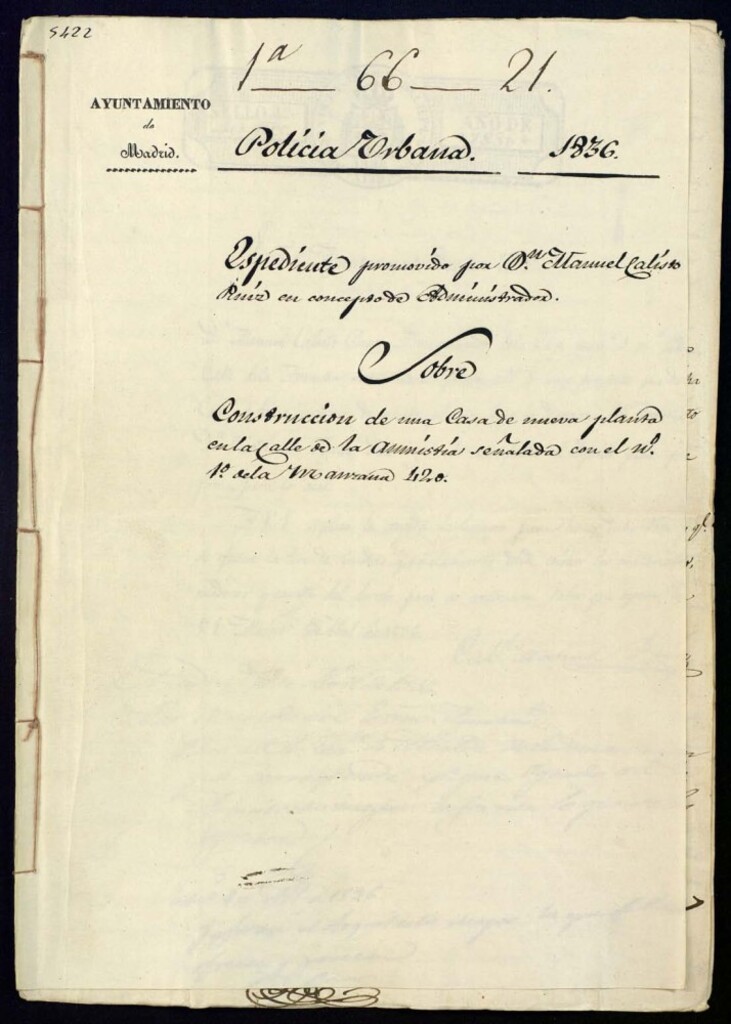 5422
1ª 66 21.
AYUNTAMIENTO
de
Madrid.
Policia Urbana. 1836.
Espediente promovido por D.n Manuel Calisto
Ruiz en concepto de Administrador.
Sobre
Construccion de una Casa de nueva planta
en la Calle de la Amnistia señalada con el nº.
1º de la Manzana 420.